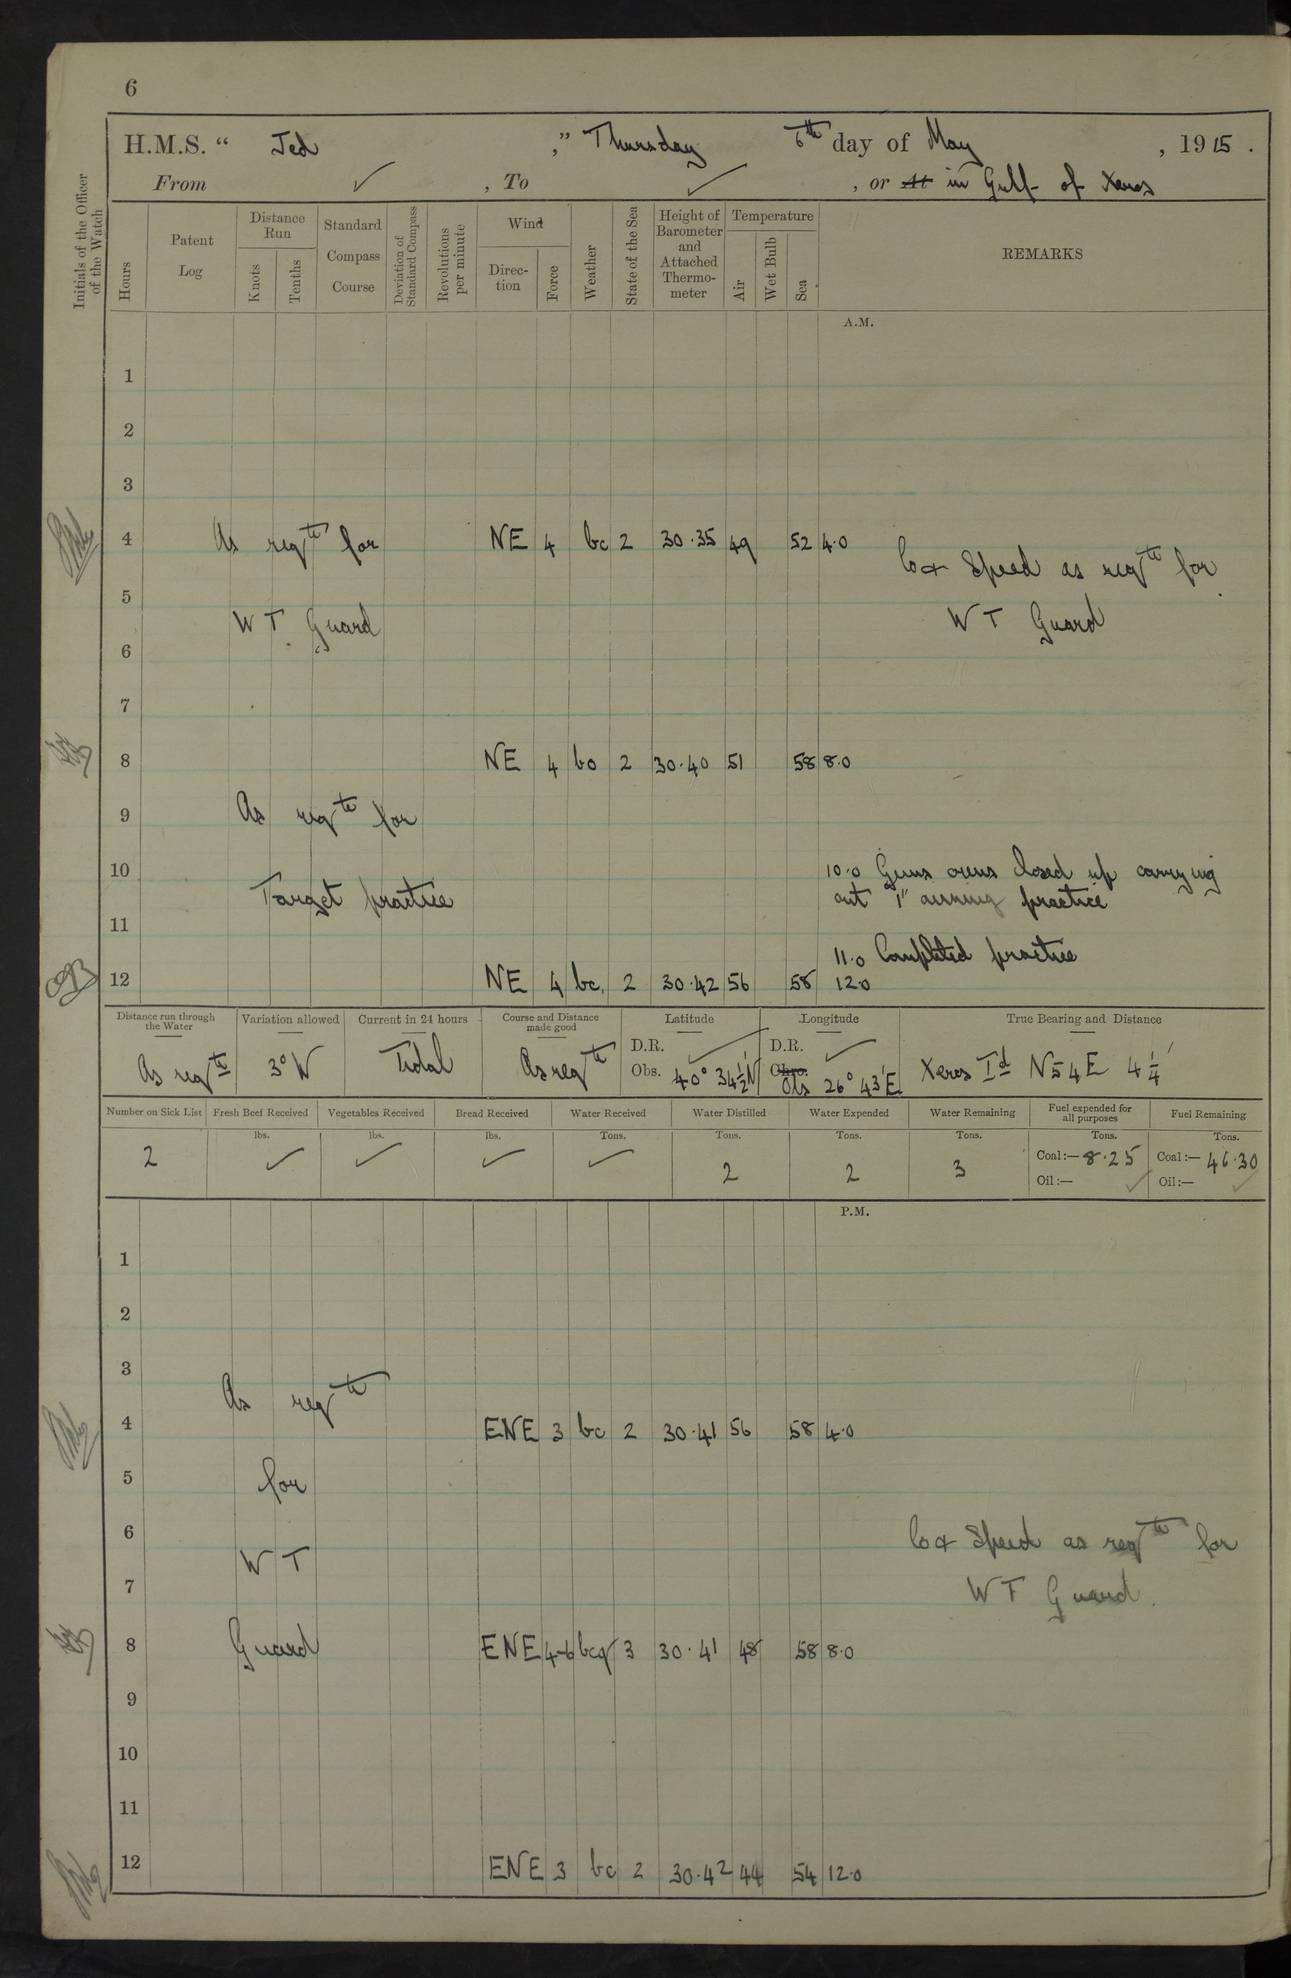 6
H.M.S. “ Jed ,” Thursday 6th day of May , 1915 .
From ✓ , To ✓ , or At in Gulf of Xeros
Initials of the Officer of the Watch
Hours
Patent Log
Distance Run
Knots
Tenths
Standard Compass Course
Deviation of Standard Compass
Revolutions per minute
Wind
Direc-tion
Force
Weather
State of the Sea
Height of Barometer and Attached Thermo-meter
Temperature
Air
Wet Bulb
Sea
REMARKS
A.M.
1
2
3
4 As reqte for NE 4 bc 2 30.35 49 52 4.0
Co & Speed as reqte for
5
W T Guard W T Guard
6
7
8 NE 4 bc 2 30.40 51 58 8.0
9 As reqte for
10 10.0 Guns crews closed up carrying
Target practice out 1" aiming practice
11
11.0 Completed practice
12 NE 4 bc 2 30.42 56 58 12.0
Distance run through the Water
Variation allowed
Current in 24 hours
Course and Distance made good
Latitude
Longitude
True Bearing and Distance
D.R. ✓ D.R. ✓
As reqte 3° W Tidal As reqte Obs. 40° 34½' N Chro. Obs 26° 43' E Xeros Id N54E 4¼'
Number on Sick List
Fresh Beef Received
Vegetables Received
Bread Received
Water Received
Water Distilled
Water Expended
Water Remaining
Fuel expended for all purposes
Fuel Remaining
lbs. lbs. lbs. Tons. Tons. Tons. Tons. Tons. Tons.
2 ✓ ✓ ✓ ✓ 2 2 3 Coal:— 8.25 Coal:— 46.30
Oil:— ✓ Oil:— ✓
P.M.
1
2
3
As reqte
4 ENE 3 bc 2 30.41 56 58 4.0
5 for
6 Co & Speed as reqte for
W T
7 W T Guard.
8 Guard ENE 4-6 bcq 3 30.41 48 58 8.0
9
10
11
12 ENE 3 bc 2 30.42 44 54 12.0